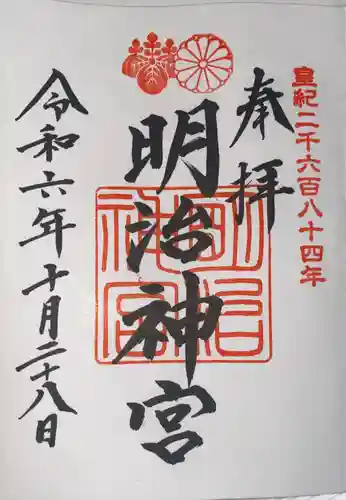 皇紀二千六百八十四年
奉拝
明治神宮
明治神宮
令和六年十月二十八日